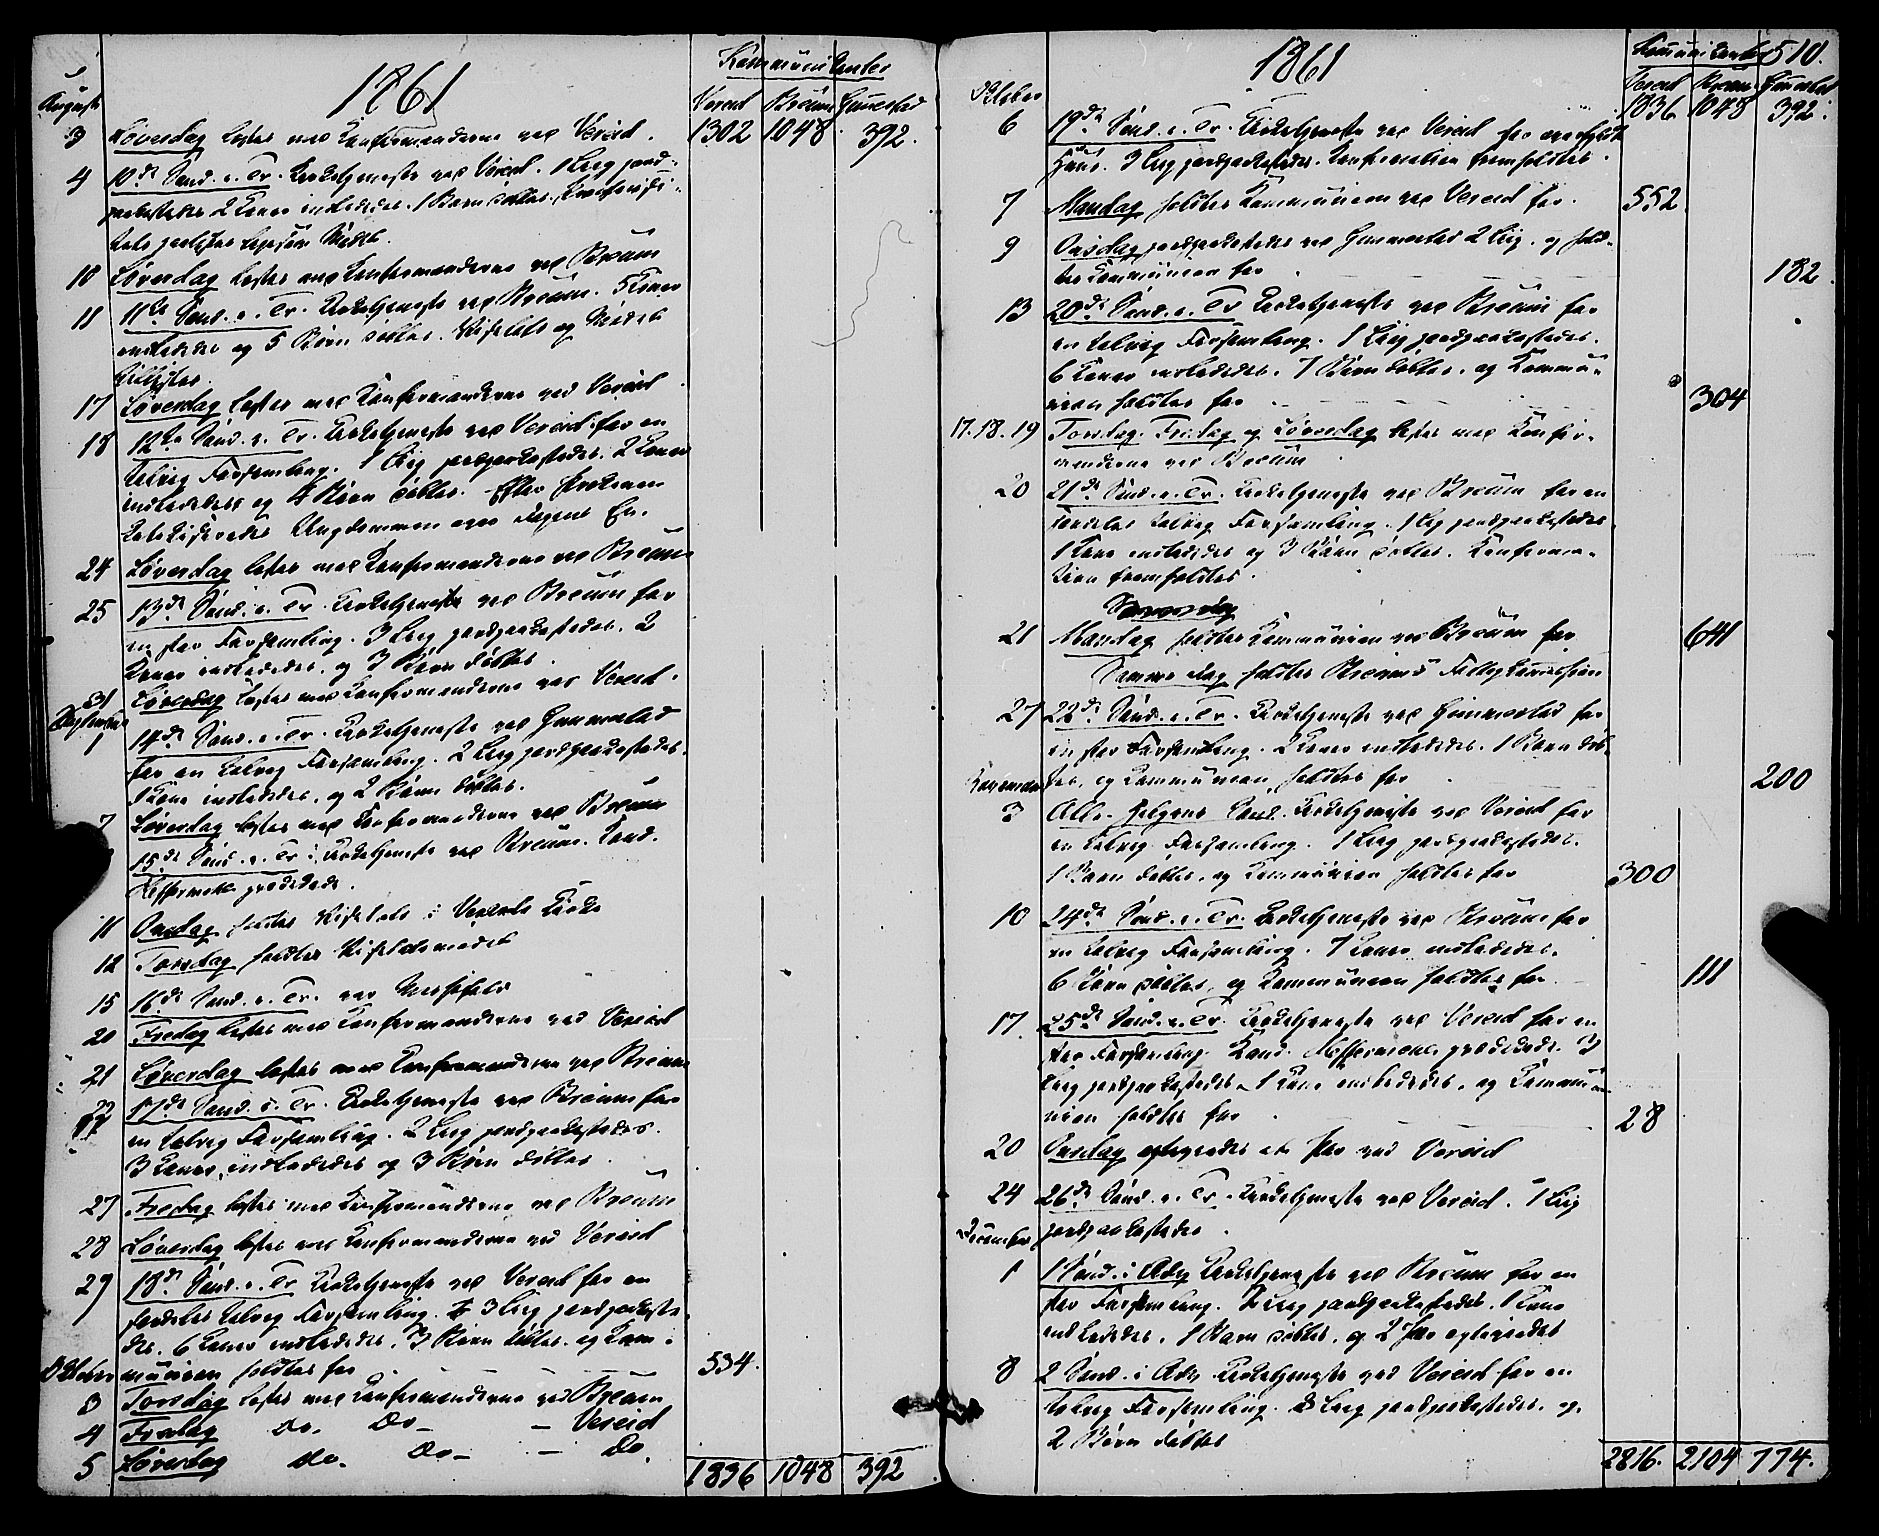 1861
Kommunikanter
August
Vereid Breum Gimmestad
3 Løverdag læstes med Konfirmanderne ved Vereid. 1302 1048 392.
4 10de Sønd. e. Tr. Kirketjeneste ved Vereid. 1 Liig jord-
paakastedes 2 Koner indlededes. 1 Barn døbtes.
10 Løverdag læstes med Konfirmanderne ved Breum
11 11te Sønd. e. Tr. Kirketjeneste ved Breum. 5 Koner
indlededes og 5 Børn døbtes. og Mødet
17 Løverdag læstes med Konfirmanderne ved Vereid
18 12te Sønd. e. Tr. Kirketjeneste ved Vereid for en
talrig Forsamling. 1 Liig jordpaakastedes. 2 Koner
indlededes og 4 Børn døbtes. Efter Prækenen
Ungdommen over
24 Løverdag læstes med Konfirmanderne ved Breum
25 13de Sønd. e. Tr. Kirketjeneste ved Breum for
en stor Forsamling. 3 Liig jordpaakastedes. 2
Koner indlededes, og 3 Børn døbtes.
31 Løverdag læstes med Konfirmanderne ved Vereid.
September
1 14de Sønd. e. Tr. Kirketjeneste ved Gimmestad
for en talrig Forsamling. 2 Liig jordpaakastedes.
1 Kone indlededes, og 2 Børn døbtes.
7 Løverdag læstes med Konfirmanderne ved Breum
15de Sønd. e. Tr. Kirketjeneste ved Breum. Kand.
prædikede.
11 Onsdag holdtes i Vereids Kirke
12 Torsdag holdtes
15 16de Sønd. e. Tr. var Messefald
20 Fredag læstes med Konfirmanderne ved Vereid
21 Løverdag læstes med Konfirmanderne ved Breum
22 17de Sønd. e. Tr. Kirketjeneste ved Breum for
en talrig Forsamling. 2 Liig jordpaakastedes.
3 Koner indlededes og 3 Børn døbtes.
27 Fredag læstes med Konfirmanderne ved Breum
28 Løverdag læstes med Konfirmanderne ved Vereid
29 18de Sønd. e. Tr. Kirketjeneste ved Vereid for en
særdeles talrig Forsamling. 3 Liig jordpaakaste-
des. 6 Koner indlededes, 3 Børn døbtes. og Kom-
Oktober munion holdtes for 534.
3 Torsdag læstes med Konfirmanderne ved Breum
4 Fredag Do. Do - - Vereid
5 Løverdag Do. Do - - Do.
1836 1048 392
1861
Kommunikanter 510.
Oktober
Vereid Breum Gimmestad
1836 1048 392.
6 19de Sønd. e. Tr. Kirketjeneste ved Vereid for
Huus. 3 Liig jordpaakastedes. Konfirmation fremholdtes.
7 Mandag holdtes Kommunion ved Vereid for. 552.
9 Onsdag jordpaakastedes ved Gimmestad 2 Liig. og hold-
tes Kommunion for 182.
13 20de Sønd. e. Tr Kirketjeneste ved Breum for
en talrig Forsamling. 1 Liig jordpaakastedes.
6 Koner indlededes. 7 Børn døbtes. og Kommu-
nion holdtes for 304
17. 18. 19 Torsdag. Fredag og Løverdag læstes med Konfir-
manderne ved Breum
20 21de Sønd. e. Tr. Kirketjeneste ved Breum for en
særdeles talrig Forsamling. 1 Liig jordpaakastedes.
1 Kone indlededes og 3 Børn døbtes. Konfirma-
tion fremholdtes.
21 Mandag holdtes Kommunion ved Breum for 641
Samme Dag holdtes Breums
27 22de Sønd. e. Tr. Kirketjeneste ved Gimmestad for
en stor Forsamling. 2 Koner indlededes. 1 Barn døb-
November tes, og Kommunion holdtes for 200
3 Alle Helgens Sønd. Kirketjeneste ved Vereid for
en talrig Forsamling. 1 Liig jordpaakastedes.
1 Barn døbtes, og Kommunion holdtes for 300
10 24de Sønd. e. Tr. Kirketjeneste ved Breum for
en talrig Forsamling. 7 Koner indlededes.
6 Børn døbtes, og Kommunion holdtes for 111
17. 25de Sønd. e. Tr. Kirketjeneste ved Vereid for en
stor Forsamling. Kand. prædikede. 3
Liig jordpaakastedes. 1 Kone indlededes, og Kommu-
nion holdtes for 28
20 Onsdag egteviedes et Par ved Vereid
24 26de Sønd. e. Tr. Kirketjeneste ved Vereid. 1 Liig
December jordpaakastedes.
1 1 Sønd. i Adv Kirketjeneste ved Breum for en
stor Forsamling. Liig jordpaakastedes. 1 Kone
indlededes. 1 Barn døbtes, og 2 Par egteviedes
8 2 Sønd. i Adv Kirketjeneste ved Vereid for en
talrig Forsamling. Liig jordpaakastedes. og
2 Børn døbtes
2816. 2104 774.